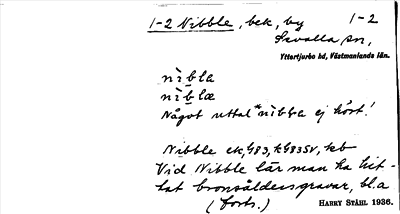 1-2 Nibble, bek, by 1-2
Sevalla sn,
Yttertjurbo hd, Västmanlands län.
nìbla
nìblæ
Något uttal *nibba ej hört!
Nibble ek, G83, kG83SV, kb
Vid Nibble lär man ha hit-
tat bronsåldersgravar, bl.a
(forts.) HARRY STÅHL 1936.